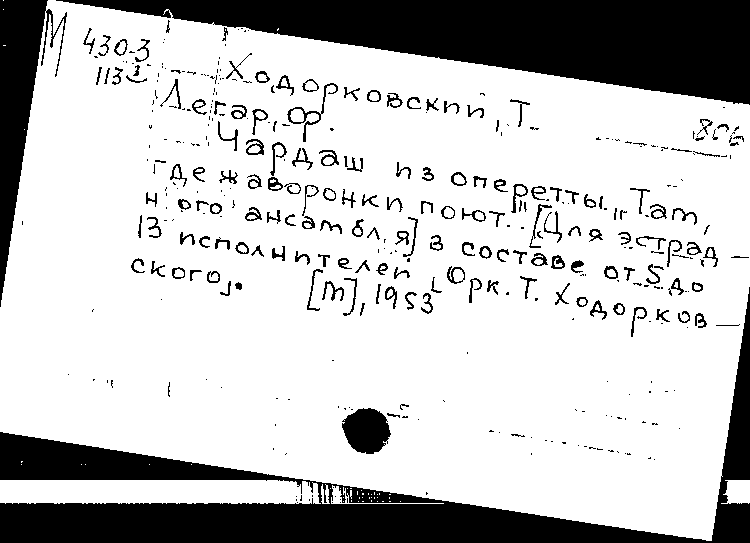 М 430-3
113
Ходорковский, Т.
806
Легар, Ф.
Чардаш из оперетты "Там,
где жаворонки поют". [Для эстрад-
ного ансамбля] в составе от 5 до
13 исполнителей [Орк. Т. Ходорков-
ского].
[М], 1953